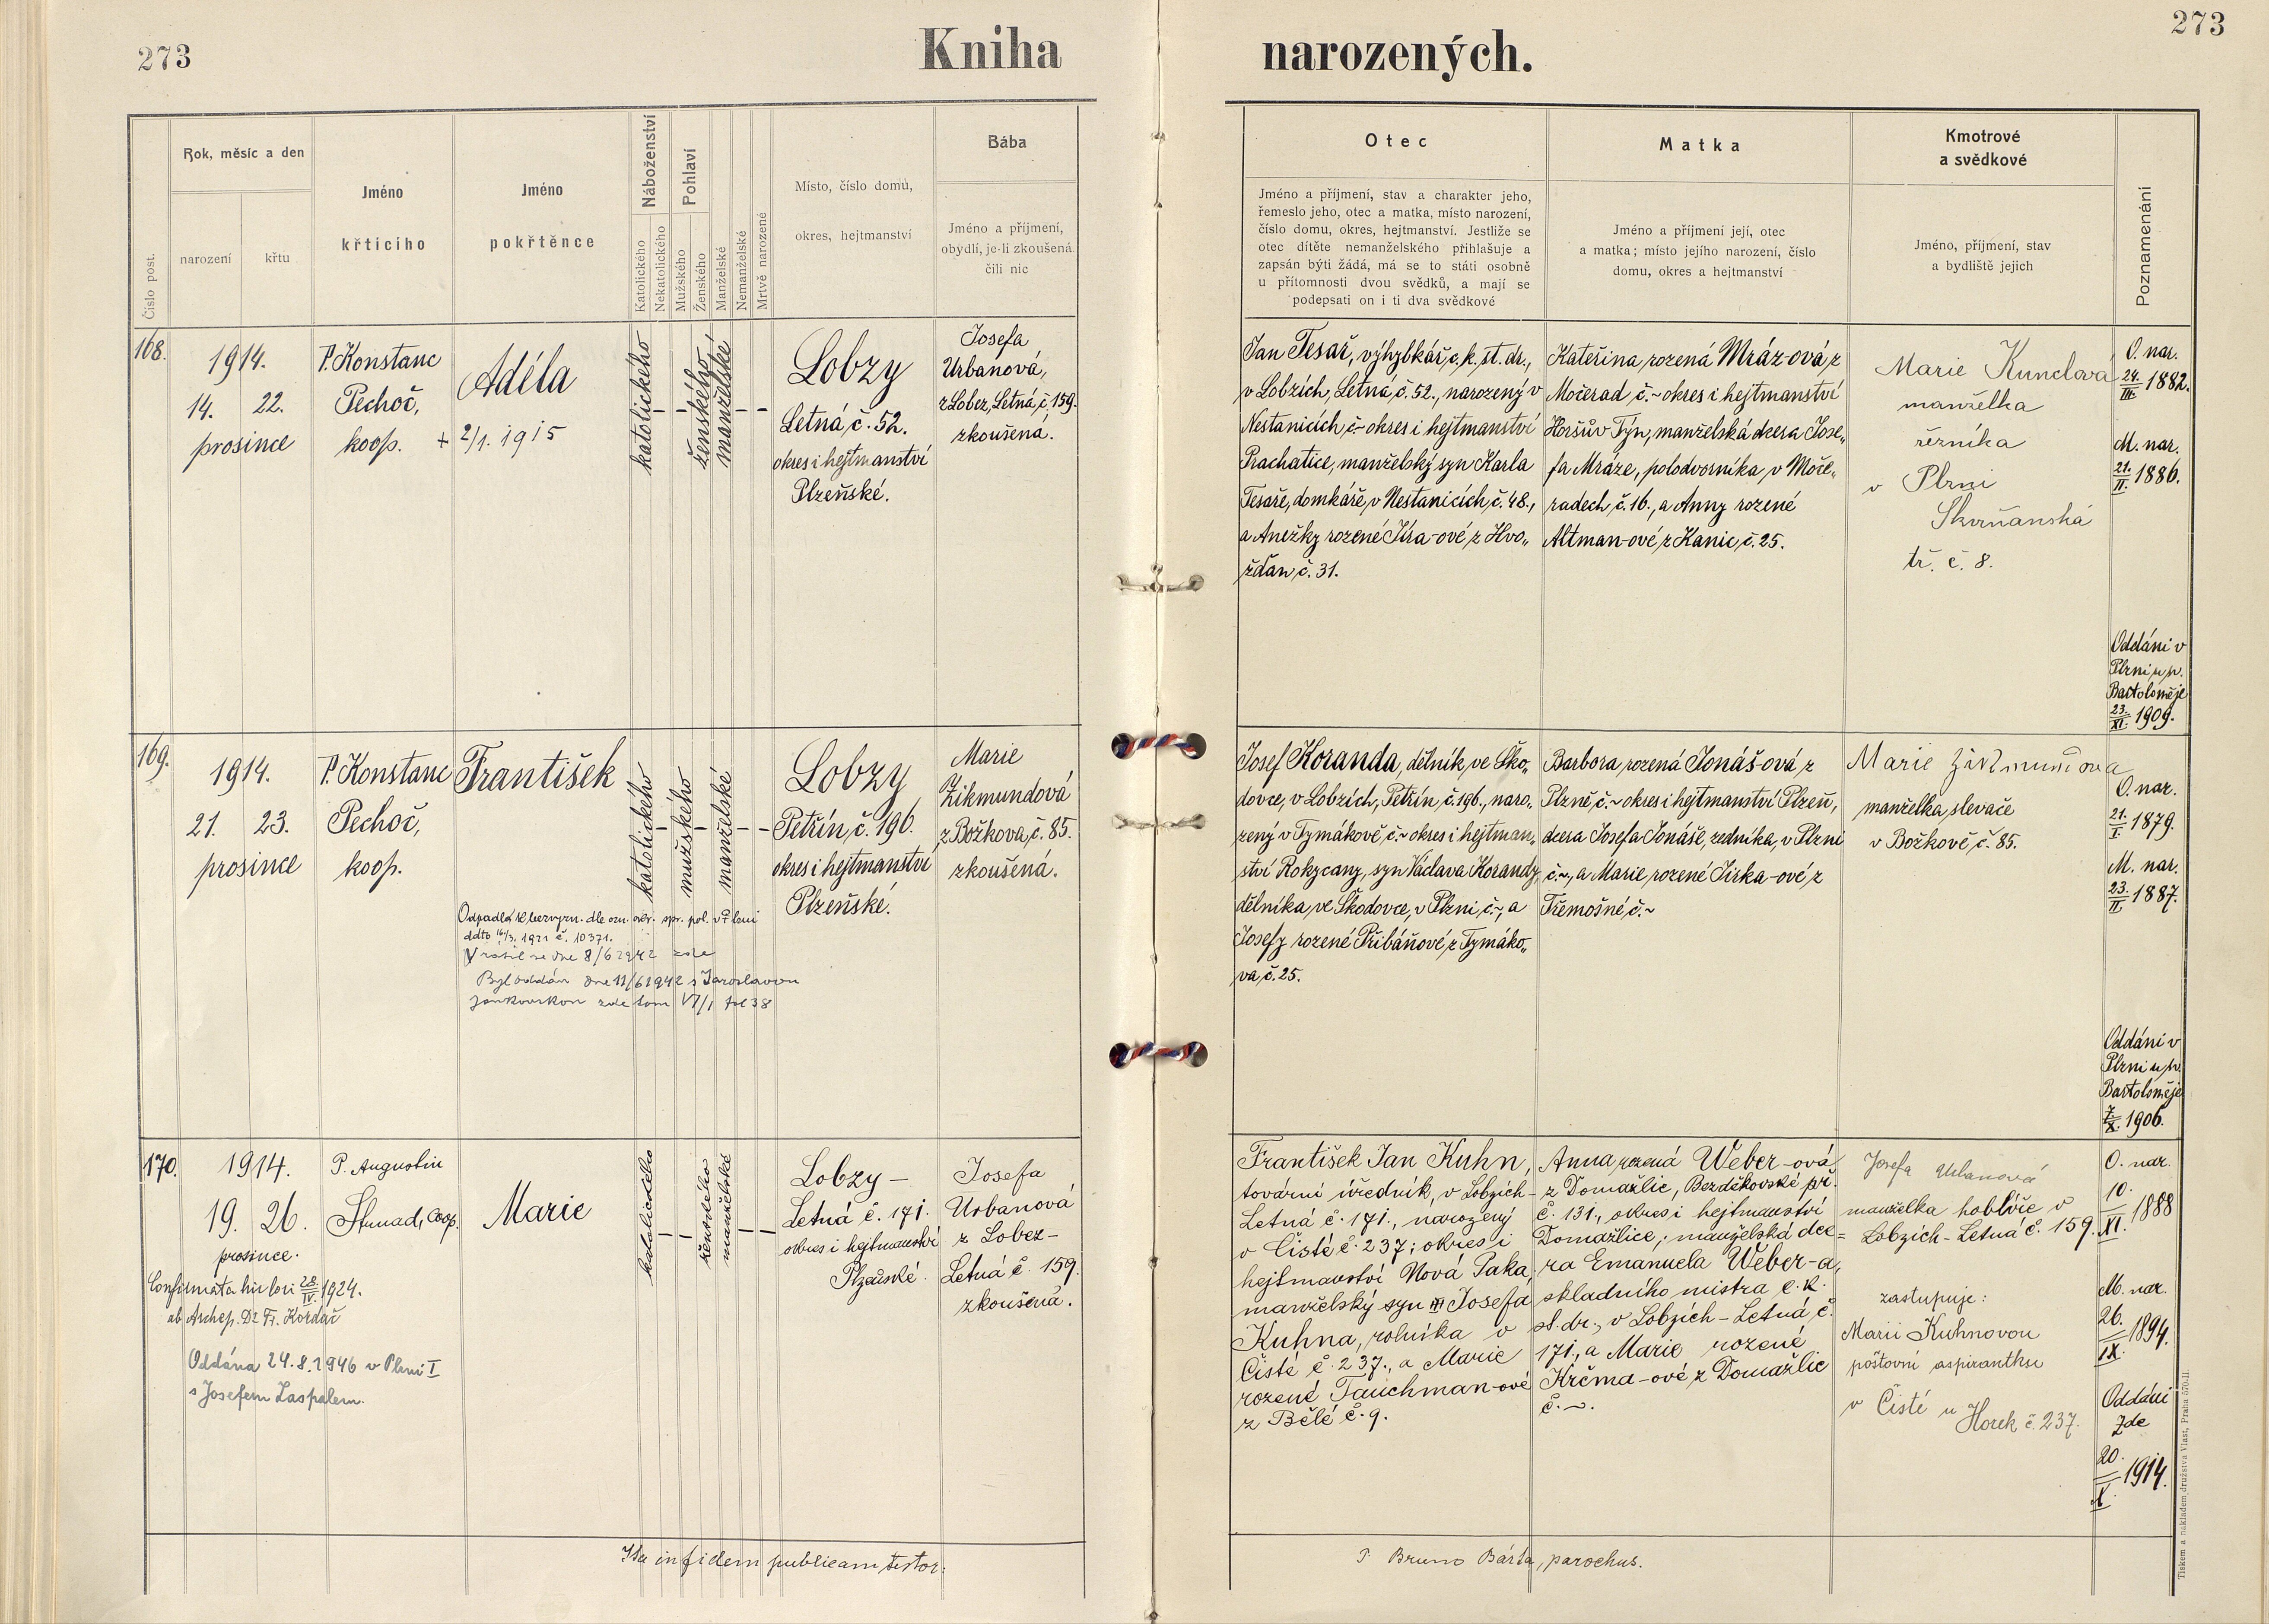 273
Kniha
narozených.
273
Číslo post.
Rok, měsíc a den
narození
křtu
Jméno
křticího
Jméno
pokřtěnce
Náboženství
Katolického
Nekatolického
Pohlaví
Mužského
Ženského
Manželské
Nemanželské
Mrtvě narozené
Místo, číslo domu,
okres, hejtmanství
Bába
Jméno a příjmení,
obydlí, je-li zkoušená
čili nic
Otec
Jméno a příjmení, stav a charakter jeho,
řemeslo jeho, otec a matka, místo narození,
číslo domu, okres, hejtmanství. Jestliže se
otec dítěte nemanželského přihlašuje a
zapsán býti žádá, má se to státi osobně
u přítomnosti dvou svědků, a mají se
podepsati on i ti dva svědkové
Matka
Jméno a příjmení její, otec
a matka; místo jejího narození, číslo
domu, okres a hejtmanství
Kmotrové
a svědkové
Jméno, příjmení, stav
a bydliště jejich
Poznamenání
168.
1914.
14. 22.
prosince
P. Konstanc
Pechoč,
koop.
Adéla
+ 2/1. 1915
katolického
–
–
ženského
manželské
– –
Lobzy
Letná č. 52.
okres i hejtmanství
Plzeňské.
Josefa
Urbanová,
z Lobez, Letná, č. 159.
zkoušená.
Jan Tesař, výhybkář c. k. st. dr.,
v Lobzích, Letná č. 52., narozený v
Nestanicích, č.~ okres i hejtmanství
Prachatice, manželský syn Karla
Tesaře, domkáře, v Nestanicích č. 48.,
a Anežky rozené Jíra-ové z Hvo„
žďan č. 31.
Kateřina rozená Mráz-ová, z
Močerad č.~ okres i hejtmanství
Horšův Týn, manželská dcera Jose„
fa Mráze, polodvorníka, v Moče„
radech č. 16., a Anny rozené
Altman-ové z Kanic, č. 25.
Marie Kunclová
manželka
řezníka
v Plzni
Skvrňanská
tř. č. 8.
O. nar.
24./III. 1882.
M. nar.
21./II. 1886.
Oddáni v
Plzni u sv.
Bartoloměje
23./XI. 1909.
169.
1914.
21. 23.
prosince
P. Konstanc
Pechoč,
koop.
František
katolického
–
mužského
–
manželské
– –
Lobzy
Petřín, č. 196.
okres i hejtmanství
Plzeňské.
Marie
Zikmundová
z Božkova, č. 85.
zkoušená.
Odpadl k bezvyzn. dle ozn. okr. spr. pol. v Plzni
ddto 16/3. 1921 č. 10371.
Vrátil se dne 8/6 1942 zde
Byl oddán dne 11/6 1942 s Jaroslavou
Jankovskou zde tom VI/1 fol 38
Josef Koranda, dělník ve Ško„
dovce, v Lobzích, Petřín, č. 196., naro„
zený v Tymákově č.~ okres i hejtman„
ství Rokycany, syn Václava Korandy,
dělníka, ve Škodovce, v Plzni, č.~, a
Josefy rozené Přibáňové z Tymáko„
va, č. 25.
Barbora rozená Jonáš-ová z
Plzně, č.~ okres i hejtmanství Plzeň,
dcera Josefa Jonáše, zedníka, v Plzni
č.~, a Marie rozené Jirka-ové z
Třemošné, č.~
Marie Zikmundova
manželka slevače
v Božkově, č. 85.
O. nar.
21./I. 1879.
M. nar.
23./II. 1887.
Oddáni v
Plzni u sv.
Bartoloměje
7./X. 1906.
170.
1914.
19. 26.
prosince.
P. Augustin
Stunad, coop.
Marie
katolického
–
–
ženského
manželské
– –
Lobzy –
Letná č. 171.
okres i hejtmanství
Plzeňské.
Josefa
Urbanová
z Lobez –
Letná č. 159.
zkoušená.
Confirmata hic loci 28./IV. 1924.
ab Archep. Dr Fr. Kordač
Oddána 24. 8. 1946 v Plzni I
s Josefem Zaspalem.
František Jan Kuhn,
tovární úředník, v Lobzích –
Letná č. 171., narozený
v Čisté č. 237; okres i
hejtmanství Nová Paka,
manželský syn Josefa
Kuhna, rolníka v
Čisté č. 237., a Marie
rozené Tauchman-ové
z Bělé č. 9.
Anna rozená Weber-ová,
z Domažlic, Bezděkovské př.
č. 131., okres i hejtmanství
Domažlice; manželská dce=
ra Emanuela Weber-a,
skladního mistra c. k.
st. dr., v Lobzích – Letná č.
171., a Marie rozené
Krčma-ové z Domažlic
č. ~.
Josefa Urbanová
manželka hoblíře v
Lobzích - Letná č. 159.
zastupuje:
Marii Kuhnovou
poštovní aspirantku
v Čisté u Horek č. 237.
O. nar.
10./XI. 1888
M. nar.
26./IX. 1894.
Oddáni
zde
20./X. 1914.
Ita in fidem publicam testor:
P. Bruno Bárta, parochus.
Tiskem a nákladem družstva Vlast, Praha 570-II.